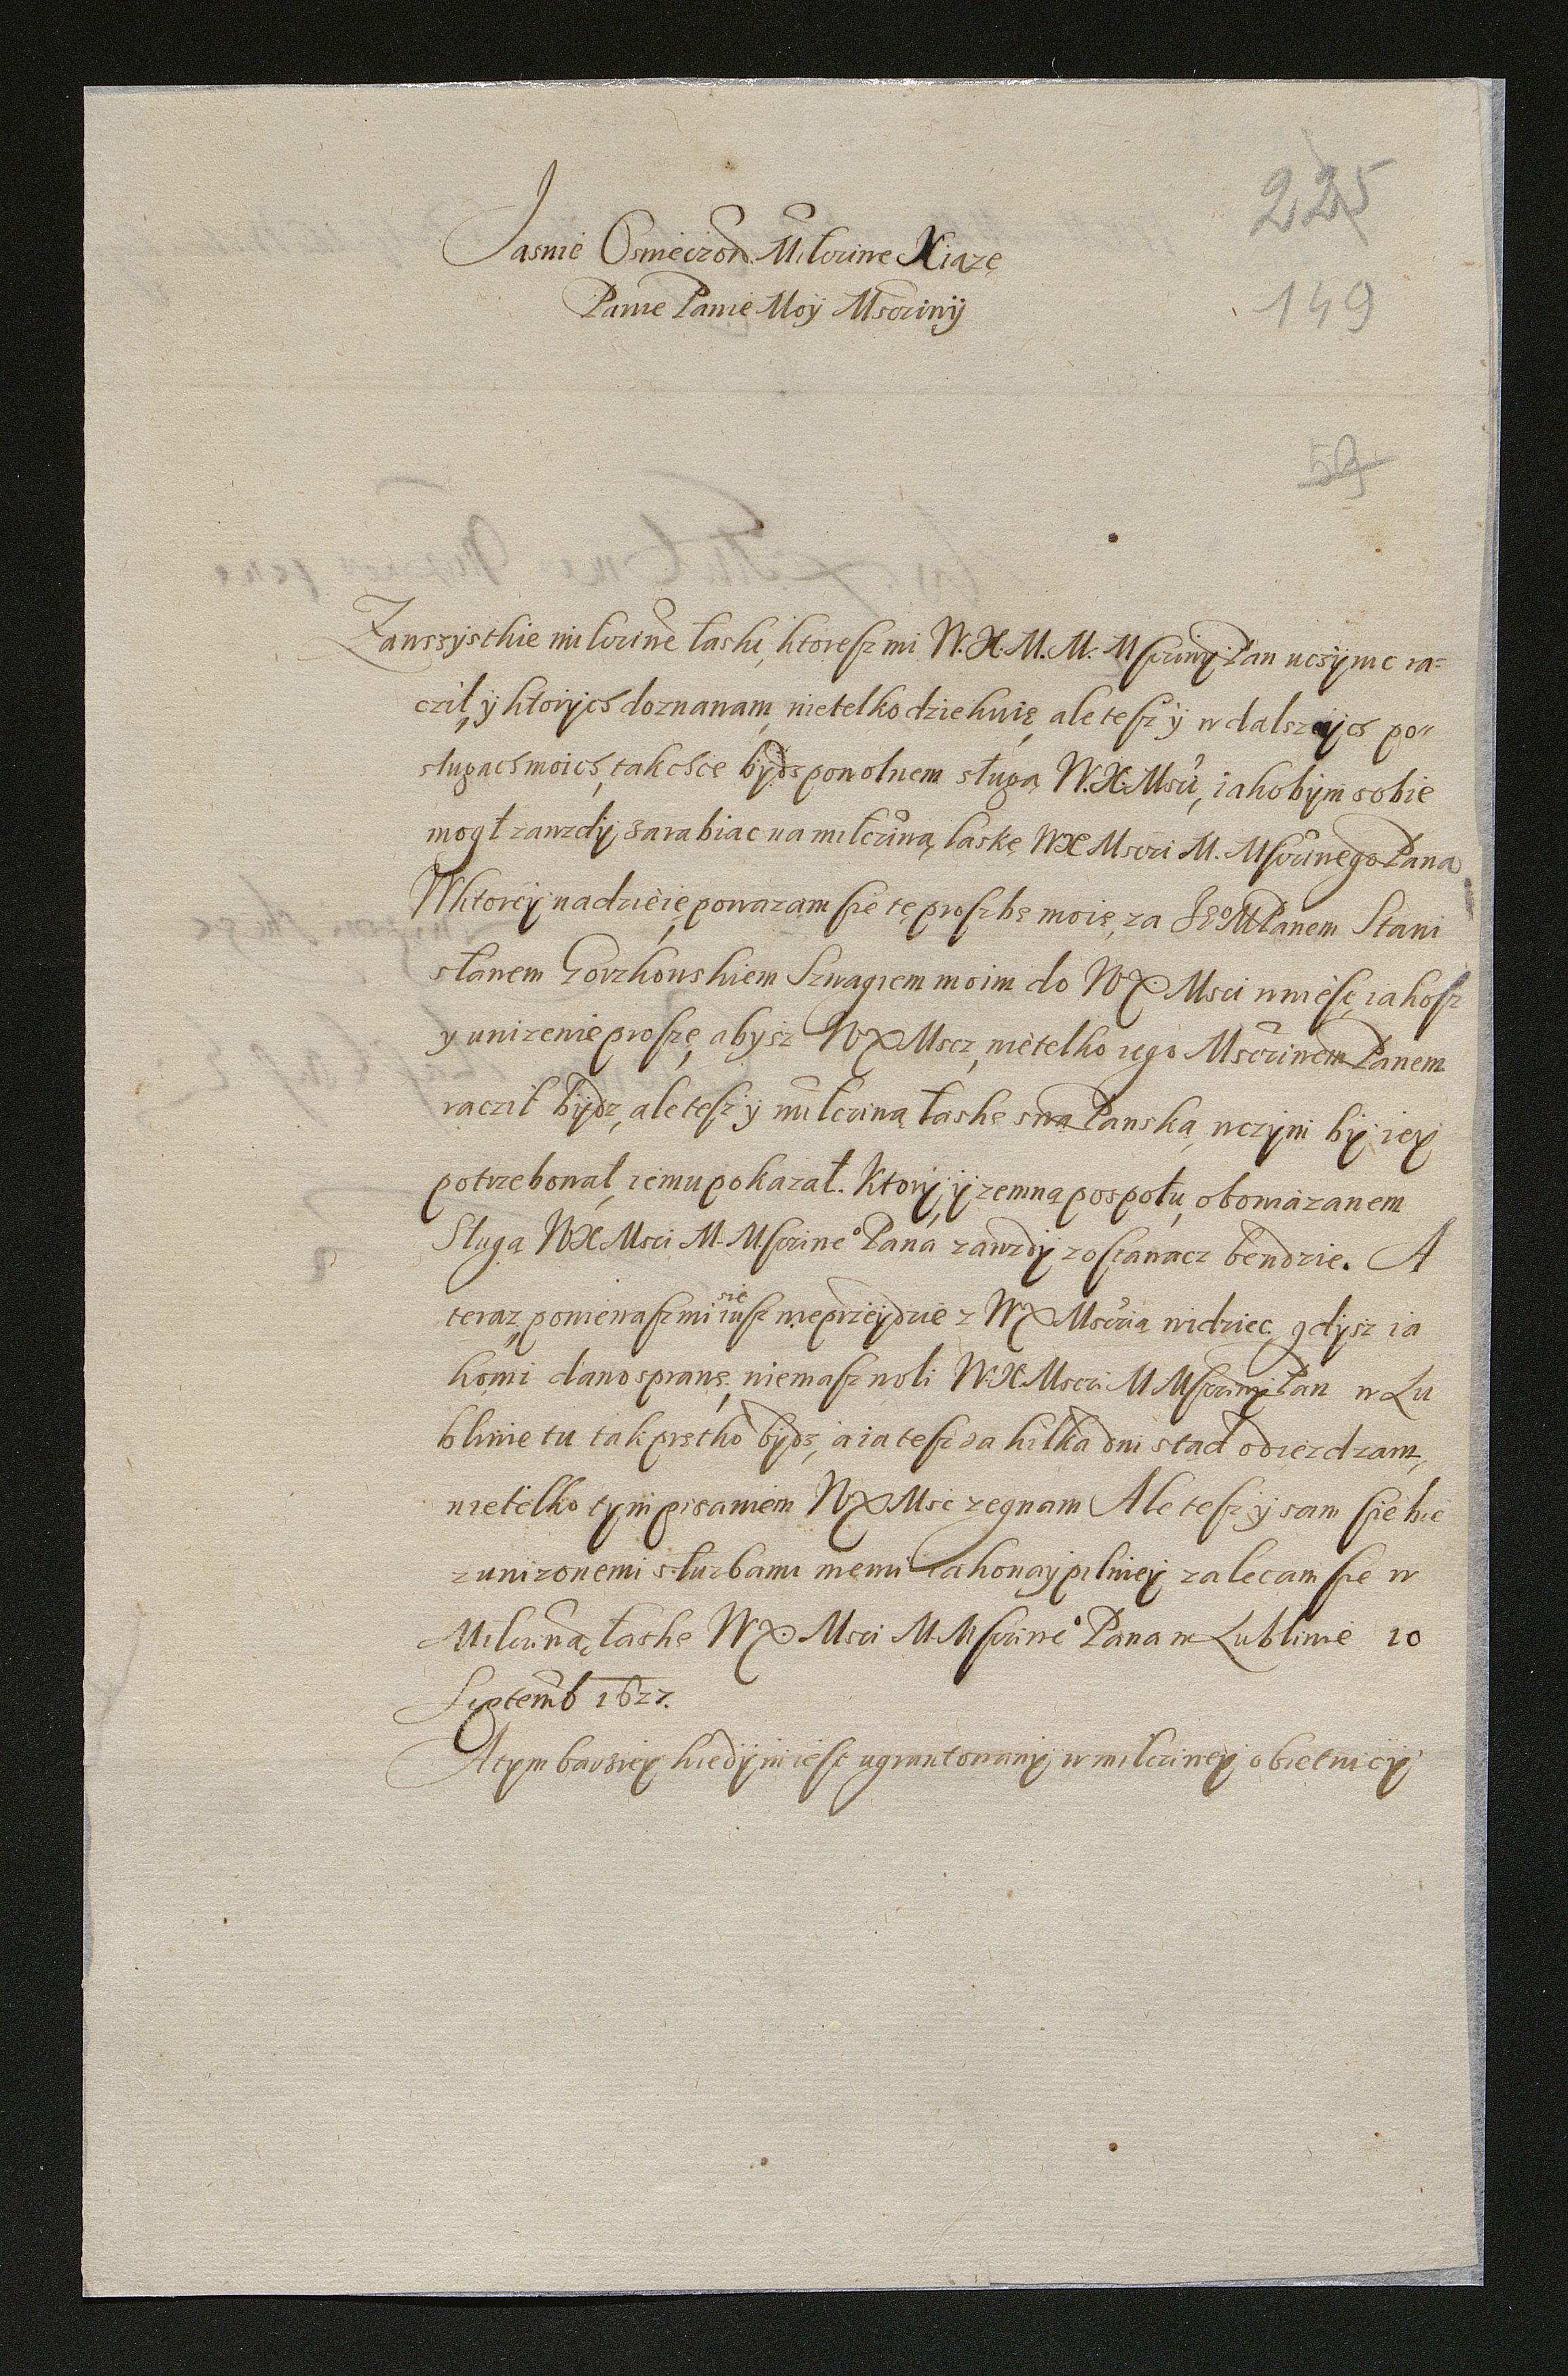 225
149
Jasnie Oswieczon. Milcziwe Xiąze
Panie Panie Moÿ Msccziwÿ
59
Zawszÿstkie milcziwe łaski, ktoreſz mi W. X. M. M. Mſcziwÿ Pan uczÿnic ra=
cził, ÿ ktorÿch doznawam, nietelko dziekuię, ale teſz ÿ w dalszÿch po"
sługach moich, tak chcę bÿdz powolnem sługą W. X. Msci, iakobÿm sobie
mogł zawzdÿ zarabiac na milcziwą łaskę WX Msczi M. Mſcziwego Pana
W ktoreÿ nadzieię, poważam ſie tę proſzbę moię, za Je° M Panem Stani
sławem Gorzkowskiem Szwagrem moim do WX Msci wnieſc, iakoſz
y unizenie proſzę, abysz WX Mscz, nietelko iego Msczziwem Panem
racził bÿdz, ale teſz ÿ milcziwą łaskę swą Panską, w czÿm bÿ ieÿ
potrzebował, iemu pokazał. Ktorÿ, ÿ zemną pospołu, obowiązanem
Sługą WX Msci M. Mſcziwe° Pana zawzdÿ zostawacz bendzie. A
teraz, poniewaſz mi się iuſz nieprzeÿdzie z WX Msczią widziec, gdÿsz ia
ko mi dano sprawę, niemaſz woli W. X. Msczi M Mſcziwÿ Pan w Lu
blinie tu tak prętko bÿdz, a ia teſz za kilka dni stąd odiezdzam,
nietelko tÿm pisaniem WX Msc zegnam Ale teſz ÿ sam ſie hic
z unizonemi słuzbami memi iako naÿpilnieÿ zalecam ſie w
Milcziwą łaskę WX. Msci M Mſcziwe° Pana w Lublinie 10
Septemb 1627.
A tÿm barzieÿ kiedÿm ieſt ugruntowanÿ w milcziweÿ obietnicÿ